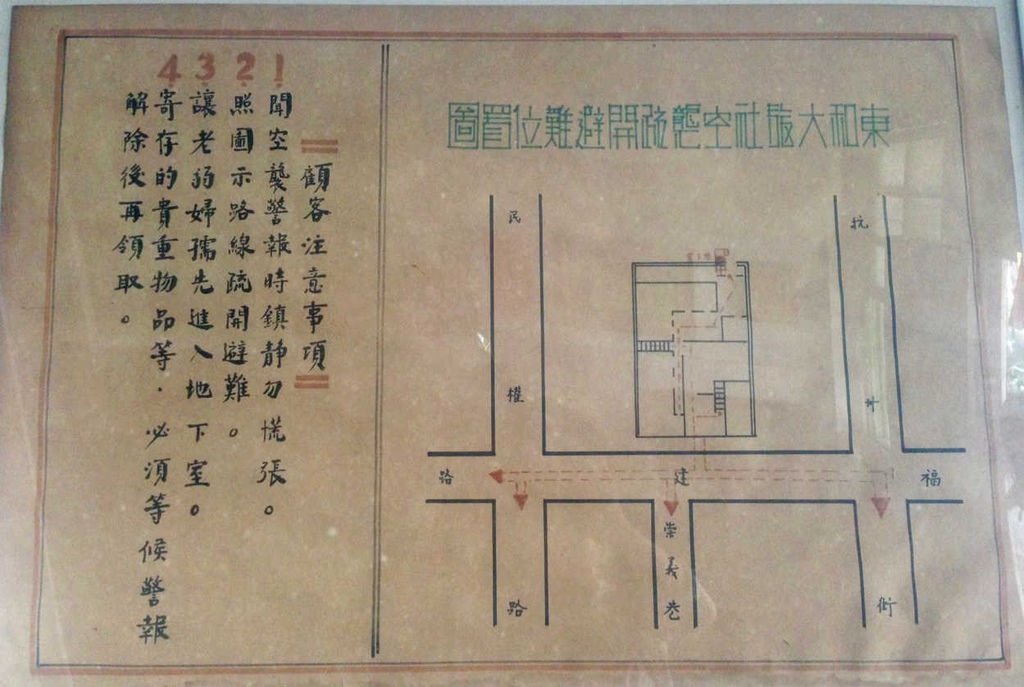 東和大旅社空襲疏開避難位置圖
民權路
抗
街
福建路
崇義巷
顧客注意事項
1 聞空襲警報時鎮靜勿慌張。
2 照圖示路線疏開避難。
3 讓老弱婦孺先進入地下室。
4 寄存的貴重物品等.必須等候警報
解除後再領取。